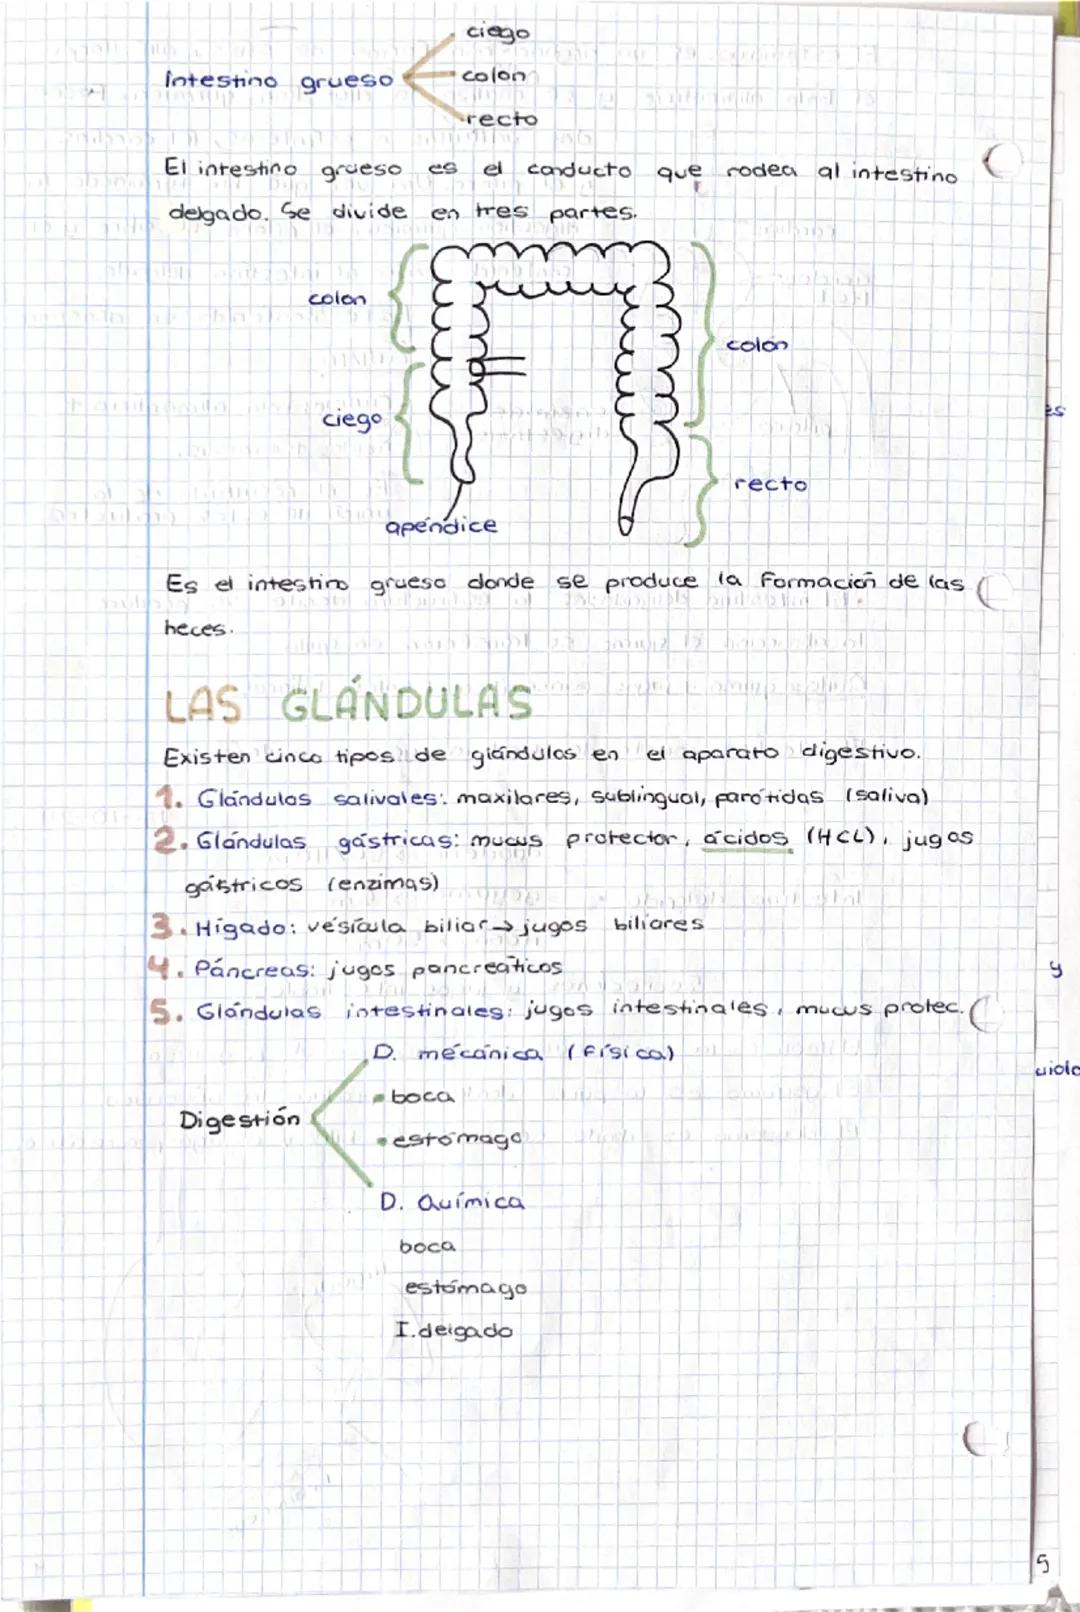 ciego
Intestino grueso
colon
recto
El intestino grueso es el conducto que rodea al intestino
delgado. Se divide en tres partes.
colon
colón
ciego
recto
apéndice
Es el intestino grueso donde se produce la formación de las
heces.
LAS GLÁNDULAS
Existen cinco tipos de glándulas en el aparato digestivo.
1. Glándulas salivales: maxilares, sublingual, parótidas (saliva)
2. Glándulas gástricas: mucus protector, ácidos (HCL), jugos
gástricos (enzimas)
3. Hígado: vesícula biliar → jugos biliares
4. Páncreas: jugos pancreáticos
5. Glándulas intestinales: jugos intestinales, mucus protec.
D. mecánica (física)
• boca
Digestión
• estómago
D. Química
boca
estómago
I. delgado
es
y
5